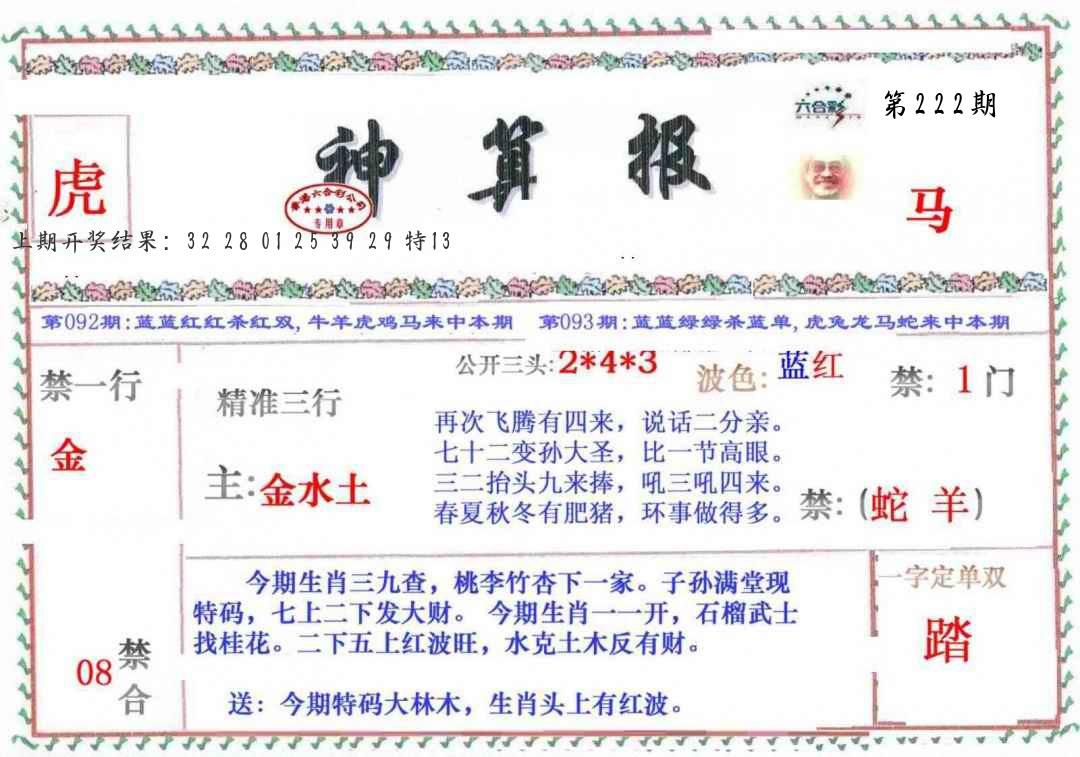 六合彩
第222期
神算报
虎
马
香港六合彩公司
专用章
上期开奖结果: 32 28 01 25 39 29 特13
第092期:蓝蓝红红杀红双,牛羊虎鸡马来中本期
第093期:蓝蓝绿绿杀蓝单,虎兔龙马蛇来中本期
禁一行
金
精准三行
主:金水土
公开三头:2*4*3
波色:蓝红
禁:1门
再次飞腾有四来，说话二分亲。
七十二变孙大圣，比一节高眼。
三二抬头九来捧，吼三吼四来。
春夏秋冬有肥猪，环事做得多。
禁:(蛇 羊)
今期生肖三九查，桃李竹杏下一家。子孙满堂现
特码，七上二下发大财。 今期生肖一一开，石榴武士
找桂花。二下五上红波旺，水克土木反有财。
送：今期特码大林木，生肖头上有红波。
08
禁合
一字定单双
踏